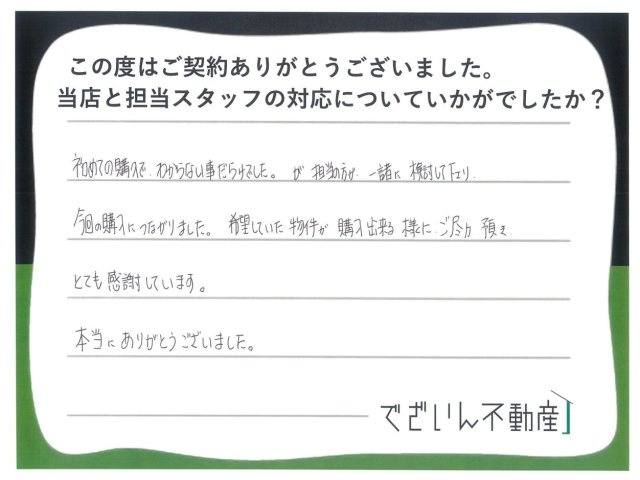 この度はご契約ありがとうございました。
当店と担当スタッフの対応についていかがでしたか？
初めての購入で、わからない事だらけでした。が 担当の方が 一諸に 検討して下り、
今回の購入につながりました。 希望していた 物件が 購入出来る 様に ご尽力 頂き
とても感謝しています。
本当にありがとうございました。
でざいん不動産